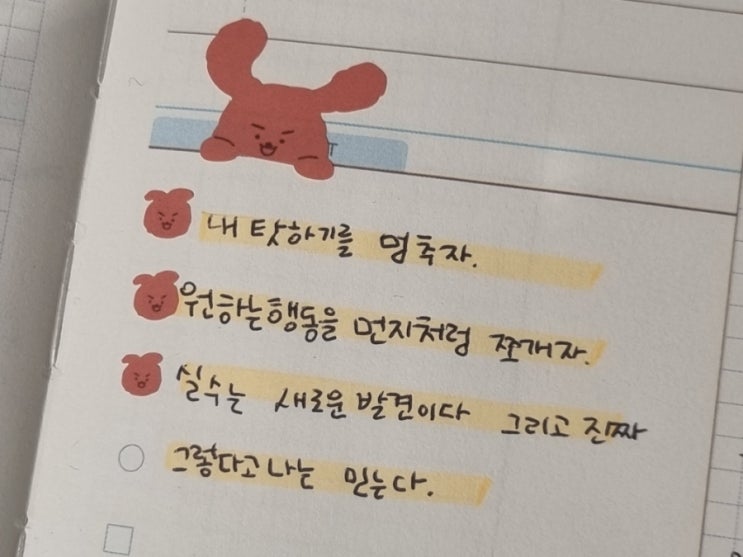 내 탓하기를 멈추자.
원하는행동을 먼지처럼 쪼개자.
실수는 새로운 발견이다 그리고 진짜
그렇다고 나는 믿는다.